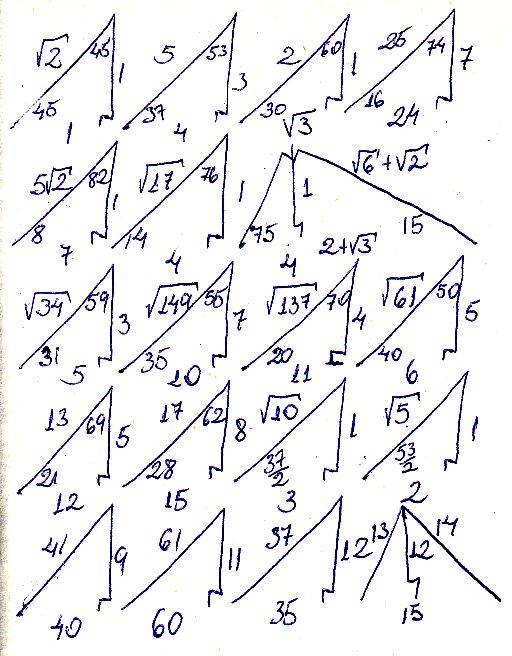 √2 45 1 5 53 3 2 60 1 25 74 7
45 1 37 4 30 √3 16 24
5√2 82 1 √17 76 1 1 √6+√2
8 7 14 4 75 4 15 2+√3
√34 59 3 √149 55 7 √137 70 4 √61 50 5
31 5 35 10 20 11 40 6
13 69 5 17 62 8 √10 1 √5 1
21 12 28 15 37/2 3 53/2 2
41 9 61 11 37 12 13 12 14
40 60 35 15